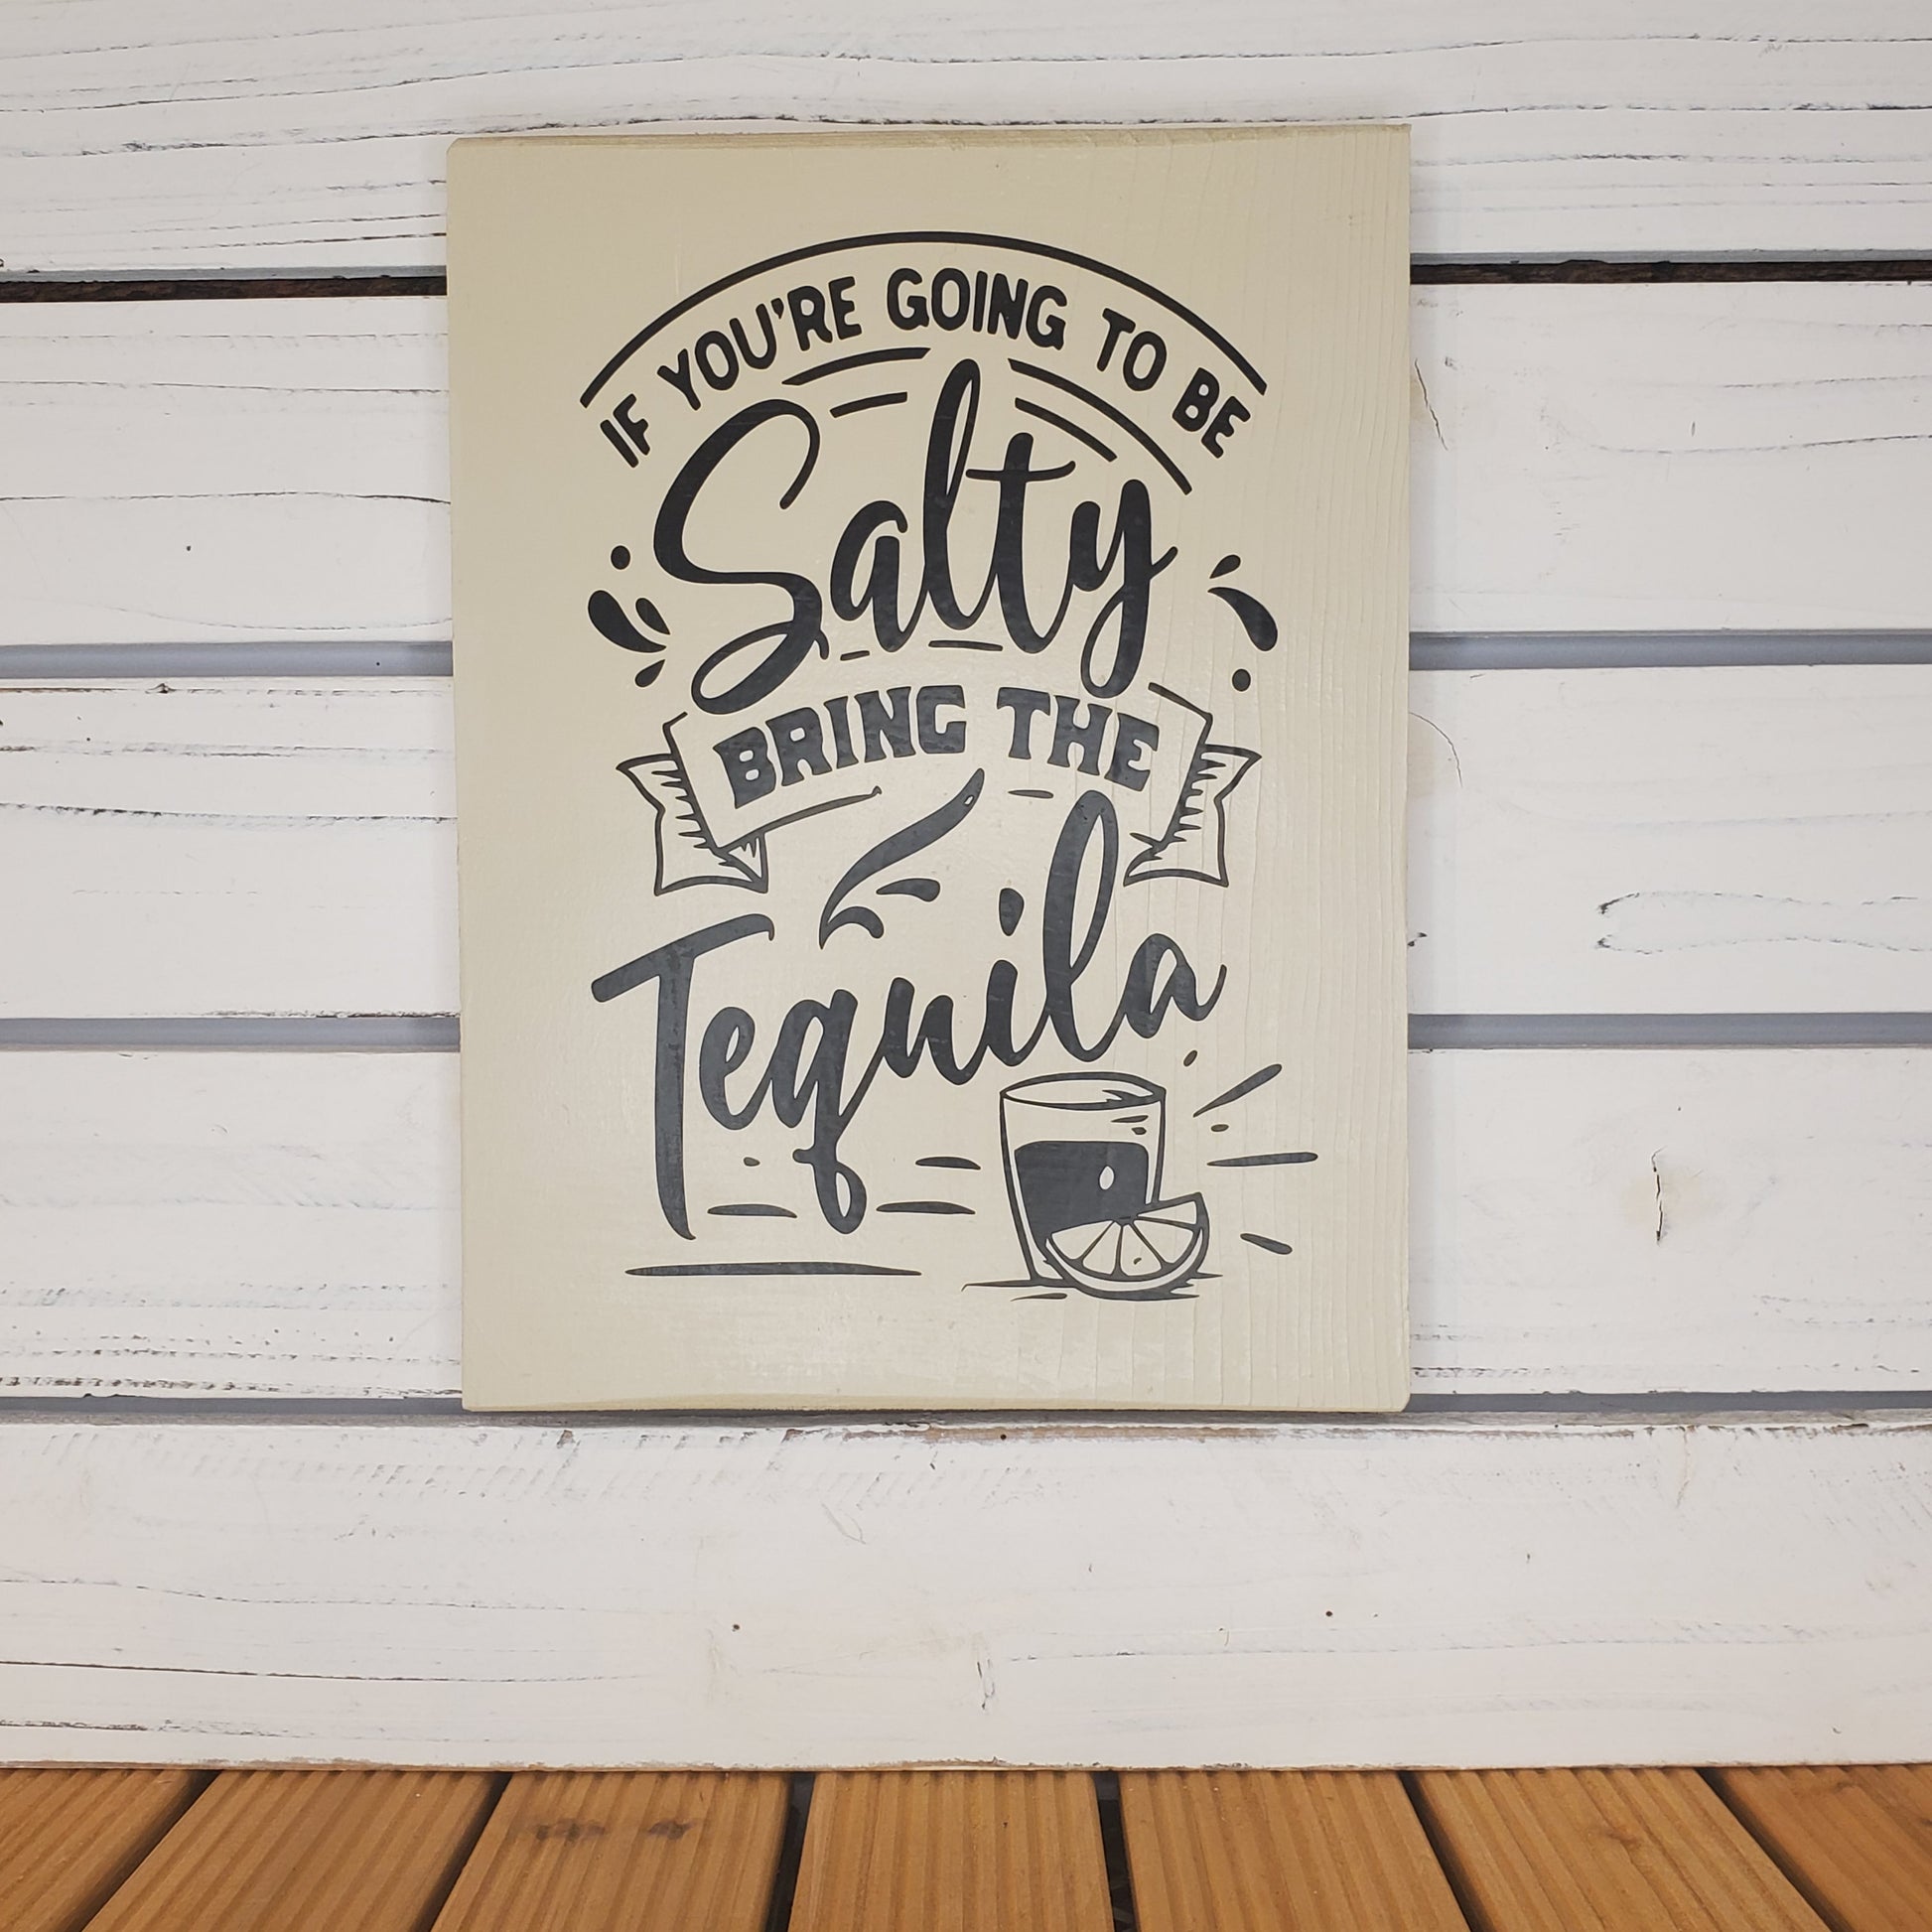 IF YOU'RE GOING TO BE
Salty
BRING THE
Tequila